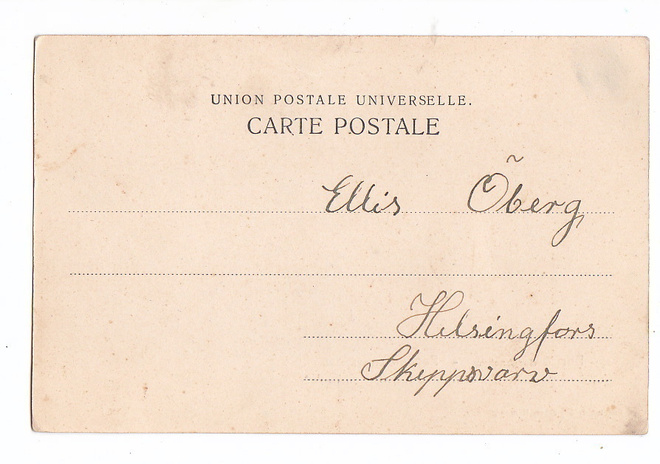 UNION POSTALE UNIVERSELLE.
CARTE POSTALE
Ellis Öberg
Helsingfors
Skeppsvarv